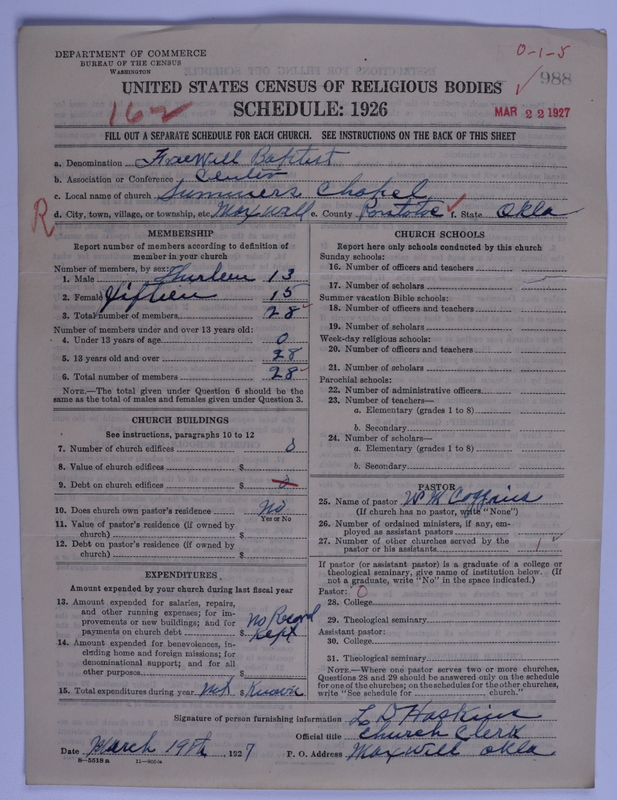 DEPARTMENT OF COMMERCE
BUREAU OF THE CENSUS
WASHINGTON
0-1-5
988
UNITED STATES CENSUS OF RELIGIOUS BODIES
162
SCHEDULE: 1926
MAR 22 1927
FILL OUT A SEPARATE SCHEDULE FOR EACH CHURCH. SEE INSTRUCTIONS ON THE BACK OF THIS SHEET
a. Denomination FreeWill Baptist
b. Association or Conference Center
c. Local name of church Summers Chapel
R
d. City, town, village, or township, etc. Maxwell e. County Pontotoc f. State Okla
MEMBERSHIP
Report number of members according to definition of member in your church
Number of members, by sex:
1. Male Thirteen 13
2. Female Fifteen 15
3. Total number of members 28
Number of members under and over 13 years old:
4. Under 13 years of age 0
5. 13 years old and over 28
6. Total number of members 28
NOTE.—The total given under Question 6 should be the
same as the total of males and females given under Question 3.
CHURCH BUILDINGS
See instructions, paragraphs 10 to 12
7. Number of church edifices 0
8. Value of church edifices $
9. Debt on church edifices $ 0
10. Does church own pastor's residence No
Yes or No
11. Value of pastor's residence (if owned by
church) $
12. Debt on pastor's residence (if owned by
church) $
EXPENDITURES
Amount expended by your church during last fiscal year
13. Amount expended for salaries, repairs,
and other running expenses; for im-
provements or new buildings; and for
payments on church debt $ No Record Kept
14. Amount expended for benevolences, in-
cluding home and foreign missions; for
denominational support; and for all
other purposes $
15. Total expenditures during year Not $ Known
CHURCH SCHOOLS
Report here only schools conducted by this church
Sunday schools:
16. Number of officers and teachers
17. Number of scholars
Summer vacation Bible schools:
18. Number of officers and teachers
19. Number of scholars
Week-day religious schools:
20. Number of officers and teachers
21. Number of scholars
Parochial schools:
22. Number of administrative officers
23. Number of teachers—
a. Elementary (grades 1 to 8)
b. Secondary
24. Number of scholars—
a. Elementary (grades 1 to 8)
b. Secondary
PASTOR
25. Name of pastor W M
(If church has no pastor, write "None")
26. Number of ordained ministers, if any, em-
ployed as assistant pastors
27. Number of other churches served by the
pastor or his assistants 1
If pastor (or assistant pastor) is a graduate of a college or
theological seminary, give name of institution below. (If
not a graduate, write "No" in the space indicated.)
Pastor: 0
28. College
29. Theological seminary
Assistant pastor:
30. College
31. Theological seminary
NOTE.—Where one pastor serves two or more churches,
Questions 28 and 29 should be answered only on the schedule
for one of the churches; on the schedules for the other churches,
write "See schedule for church."
Signature of person furnishing information L D Haskins
Official title Church Clerk
Date March 19th, 1927 P. O. Address Maxwell Okla
8—5518 a